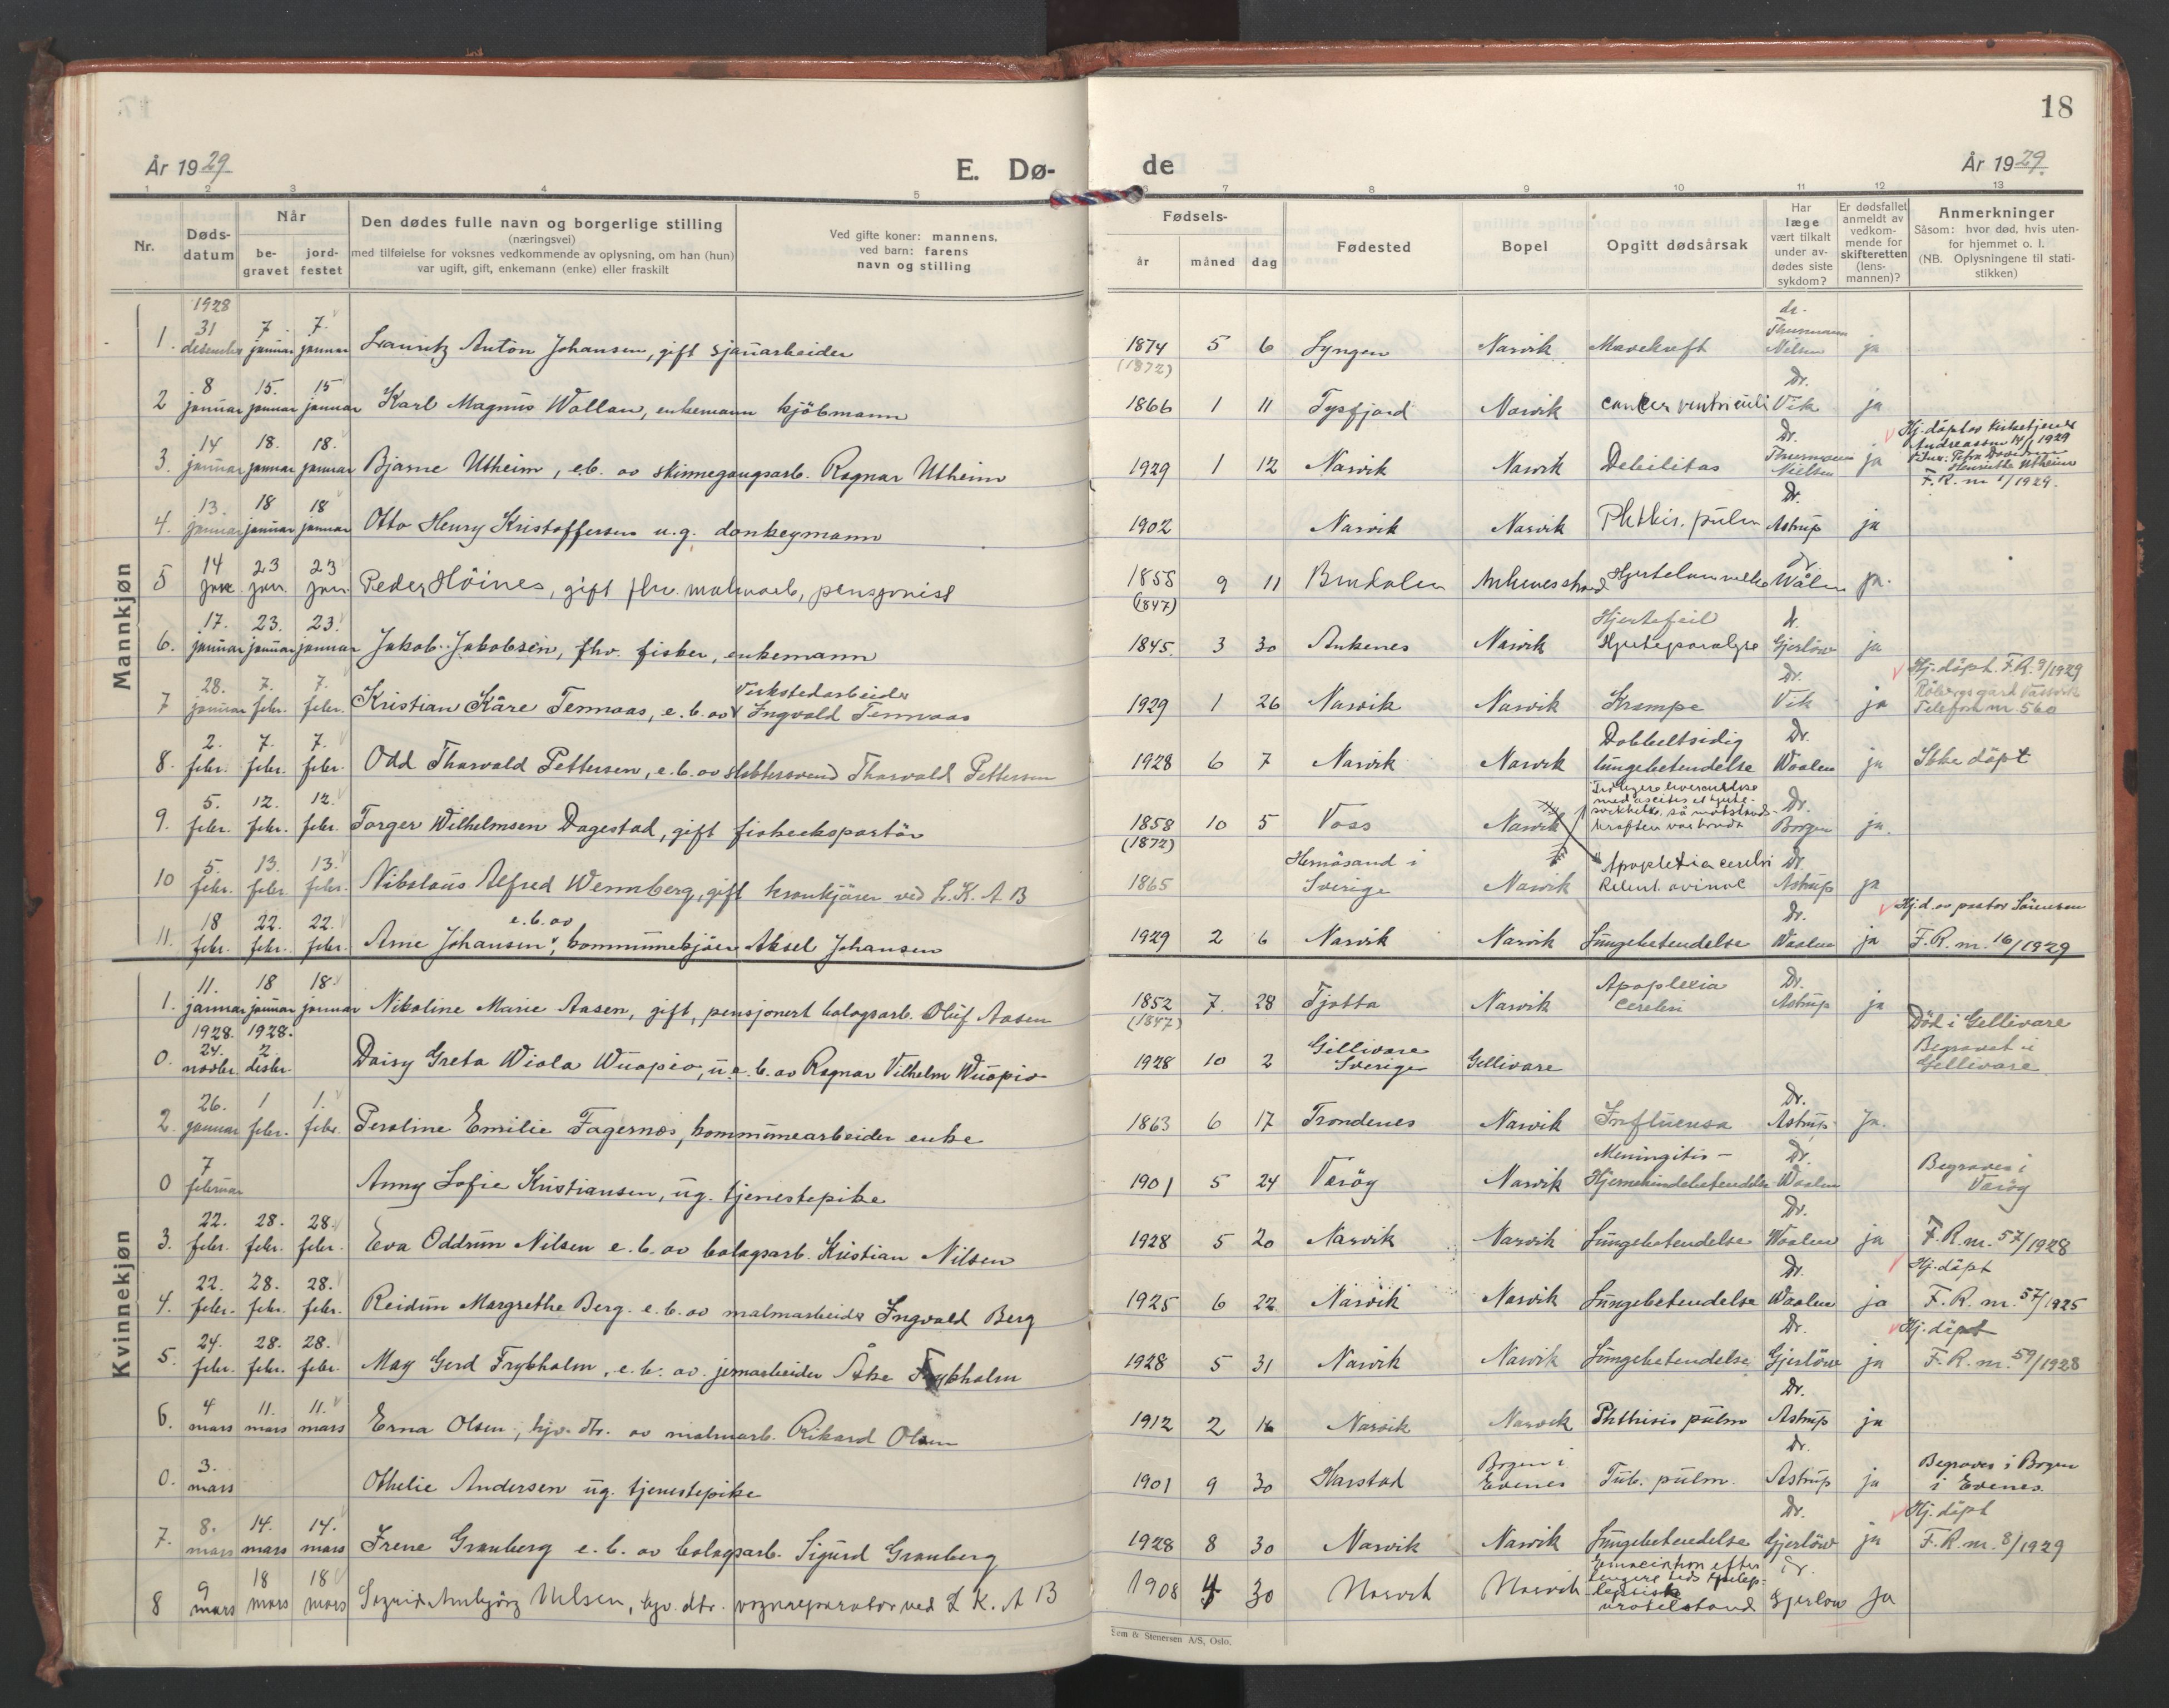 18
År 1929
E. Dø-
de
År 1929.
1 2 3 4 5 6 7 8 9 10 11 12 13
Nr.
Døds-
datum
Når
be-
gravet
jord-
festet
Den dødes fulle navn og borgerlige stilling
(næringsvei)
med tilføielse for voksnes vedkommende av oplysning, om han (hun)
var ugift, gift, enkemann (enke) eller fraskilt
Ved gifte koner: mannens,
ved barn: farens
navn og stilling
Fødsels-
år måned dag
Fødested
Bopel
Opgitt dødsårsak
Har
læge
vært tilkalt
under av-
dødes siste
sykdom?
Er dødsfallet
anmeldt av
vedkom-
mende for
skifteretten
(lens-
mannen)?
Anmerkninger
Såsom: hvor død, hvis uten-
for hjemmet o. l.
(NB. Oplysningene til stati-
stikken)
Mannkjøn
1928
1. 31 desember 7. januar 7. januar Lauritz Anton Johansen, gift sjauarbeider 1874 (1872) 5 6 Lyngen Narvik Mavekreft dr. Thurmann Nielsen ja
2 8 januar 15. januar 15 januar Karl Magnus Wollan, enkemann kjöbmann 1866 1 11 Tysfjord Narvik cancer ventriculi Dr. Vik ja
3. 14 januar 18. januar 18. januar Bjarne Utheim, e.b. av skinnegangsarb. Ragnar Utheim 1929 1 12 Narvik Narvik Debilitas Dr. Thurmann Nielsen ja Hj. döpt av kirketjener
Andreassen 14/1 1929
Henriette Utheim
F.R. nr 1/1929.
4. 13. januar 18 januar 18 januar Otto Henry Kristoffersen u.g. donkeymann 1902 Narvik Narvik Phthis. pulm Dr. Astrup ja
5 14 jan. 23 jan. 23 jan. Peder Höines, gift fhv. malmarb, pensjonist 1858 (1847) 9 11 Ankenesstrand Dr. Wålen ja.
6. 17. januar 23. januar 23. januar Jakob Jakobsen, fhv. fisker, enkemann 1845. 3 30 Ankenes Narvik Hjertefeil
Hjerteparalyse dr. Gjerlöw ja
7 28. januar 7. febr. 7. febr. Kristian Kåre Tennaas, e.b. av Verkstedarbeider
Ingvald Tennaas 1929 1 26 Narvik Narvik Krampe Dr. Vik ja Hj. döpt. F.R. 9/1929
Telefon nr. 560
8. 2. febr. 7. febr. 7. febr. Odd Thorvald Pettersen, e.b. av Thorvald Pettersen 1928 6 7 Narvik Narvik Dobbeltsidig
lungebetendelse Dr. Waalen ja Ikke döpt
9. 5. febr. 12. febr. 12. febr. Torger Wilhelmsen Dagestad, gift fiskeeksportör 1858 (1872) 10 5 Voss Narvik Dr. Borgen ja.
10 5. febr. 13. febr. 13. febr. Nikolaus Alfred Wennberg, gift krankjörer ved L.K.A B 1865 Hernösand i
Sverige Narvik Apoplexia cerebri
Retent. urinae Dr. Astrup ja
11. 18 febr. 22. febr. 22. febr. Arne Johansen, e.b. av kommunekjörer Aksel Johansen 1929 2 6 Narvik Narvik Lungebetendelse Dr. Waalen ja Hj. d. av pastor Sörensen
F.R. nr. 16/1929
Kvinnekjøn
1. 11. januar 18 januar 18. januar Nikoline Marie Aasen, gift, pensjonert bolagsarb. Oluf Aasen 1852 (1847) 7. 28 Tjøtta Narvik Apoplexia
cerebri Dr. Astrup ja
0. 1928. 24. novbr. 1928. 2. desbr. Daisy Greta Wiola Wuopio, u.e.b. av Ragnar Vilhelm Wuopio 1928 10 2 Gellivare
Sverige Gellivare Död i Gellivare
Begravet i
Gellivare.
2. 26. januar 1 febr. 1. febr. Peroline Emilie Fagernes, kommunearbeider enke 1863 6 17 Trondenes Narvik Influensa Dr. Astrup ja.
0 7 februar Anny Sofie Kristiansen, ug. tjenestepike 1901 5 24 Væröy Narvik Meningitis -
Hjernehindebetendelse Dr. Waalen Begraves i
Væröy
3. 22. febr. 28. febr. 28. febr. Eva Oddrun Nilsen e.b. av bolagsarb. Kristian Nilsen 1928 5 20 Narvik Narvik Lungebetendelse Dr. Waalen ja F.R. nr. 57/1928
4. 22. febr. 28. febr. 28. febr. Reidun Margrethe Berg. e.b. av malmarbeider Ingvald Berg 1925 6 22 Narvik Narvik Lungebetendelse Dr. Waalen ja Hj. döpt
F.R. nr. 57/1925
5. 24. febr. 28. febr. 28. febr. May Gerd Frykholm, e.b. av. jernarbeider Åke Frykholm 1928 5 31 Narvik Narvik Lungebetendelse Dr. Gjerlöw ja Hj. döpt
F.R. nr. 59/1928
6. 4 mars 11. mars 11. mars Erna Olsen, hjv. dtr. av malmarb. Rikard Olsen 1912 2 16 Narvik Narvik Phthisis pulm Dr. Astrup ja
0. 3. mars Othelie Andersen ug. tjenestepike 1901 9 30 Harstad Bogen i
Evenes Tub. pulm. Dr. Astrup ja Begraves i Bogen
i Evenes.
7. 8. mars 14. mars 14. mars Irene Granberg e.b. av bolagsarb. Sigurd Granberg 1928 8 30 Narvik Narvik Lungebetendelse Dr. Gjerlöw ja Hj. döpt
F.R. nr. 8/1929
8 9 mars 18 mars 18 mars Sigrid Anbjörg Nilsen, hjv. dtr. vognreparatör ved L K. A B 1908 4 30 Narvik Narvik dr. Gjerlöw ja
Sem & Stenersen A/S, Oslo.